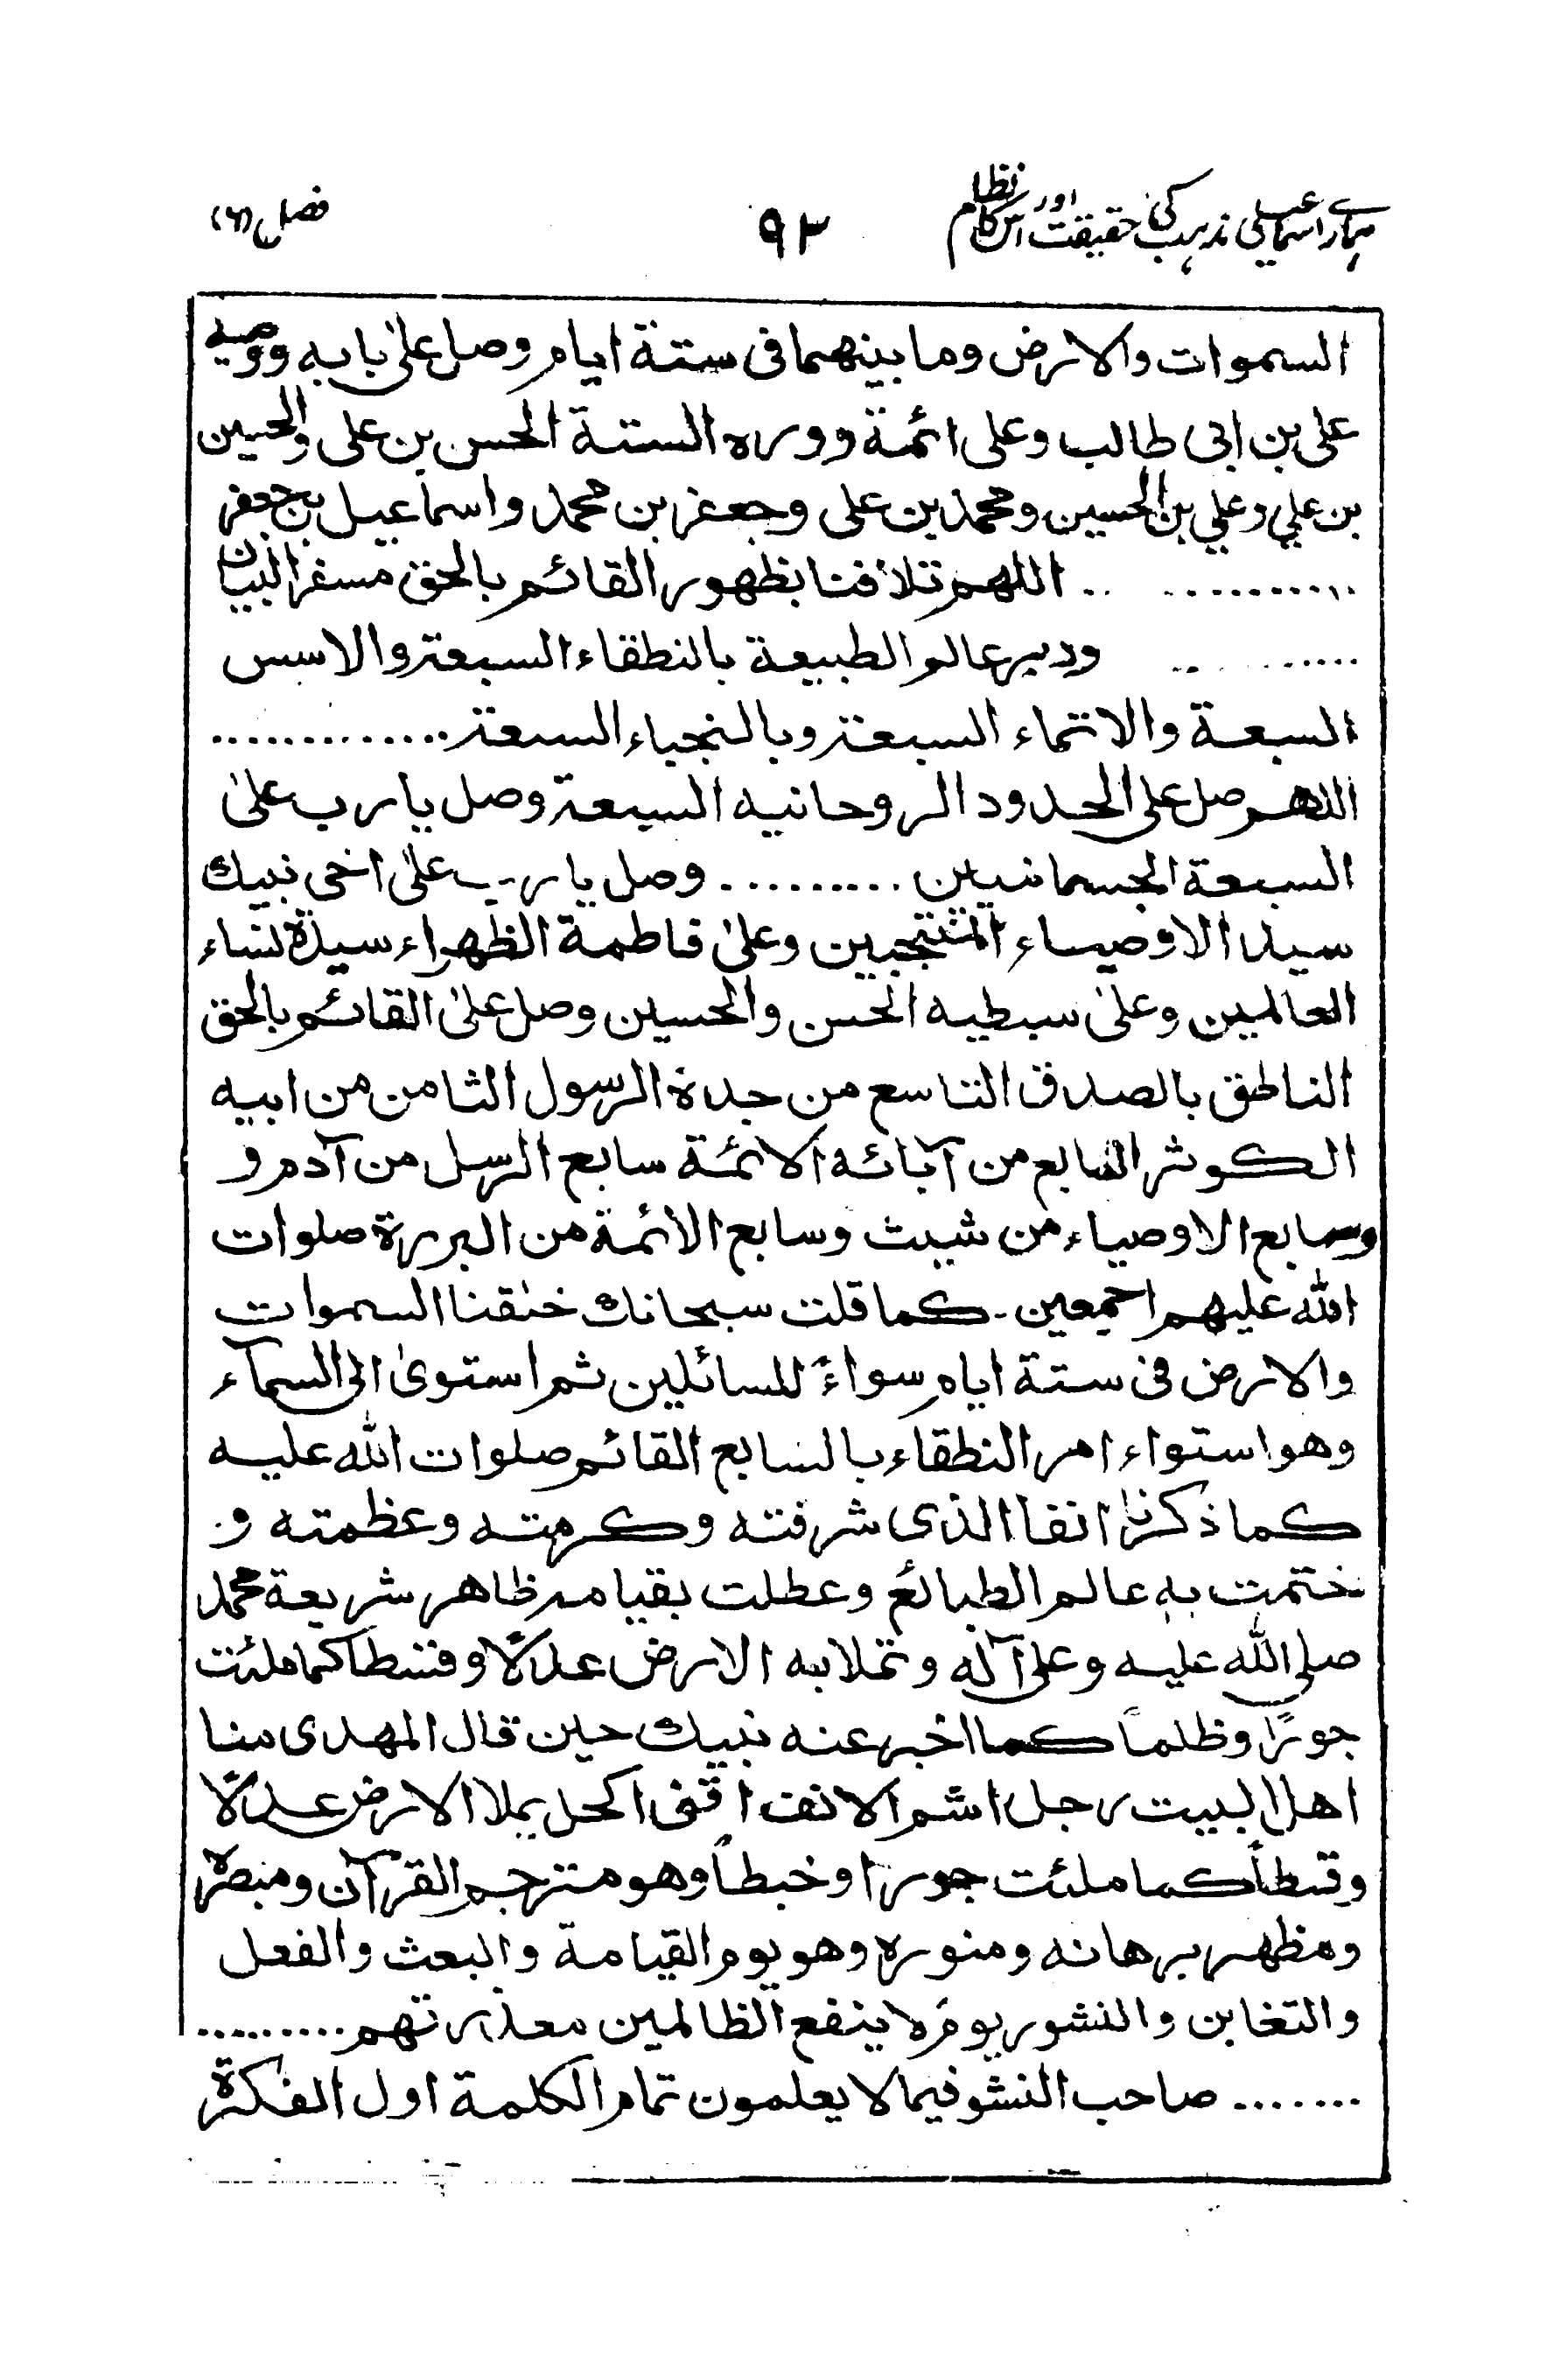 ہمارے اسماعیلی مذہب کی حقیقت اور اس کا نظام ۹۳ فصل (۶)
السموات والارض وما بینهما فی ستة ایام وصل علیٰ بابه ووصیه
علی بن ابی طالب وعلی ائمة دوره الستة الحسن بن علی والحسین
بن علي وعلي بن الحسین ومحمد بن علی وجعفر بن محمد واسماعیل بن جعفر
............ اللهم تلافنا بظهور القائم بالحق مسفر البیان
............ ودبر عالم الطبیعة بالنطقاء السبعة والاسس
السبعة والاتماء السبعة وبالنجباء السبعة............
اللهم صل علی الحدود الروحانیه السبعة وصل یا رب علیٰ
السبعة الجسمانیین .......... وصل یا رب علیٰ اخی نبیك
سید الاوصیاء المنتجبین وعلیٰ فاطمة الظهراء سیدة نساء
العالمین وعلیٰ سبطیه الحسن والحسین وصل علیٰ القائم بالحق
الناطق بالصدق التاسع من جدة الرسول الثامن من ابیه
الکوثر السابع من آبائه الائمة سابع الرسل من آدم و
وسابع الاوصیاء من شیث وسابع الائمة من البررة صلوات
الله علیهم اجمعین ۔ کما قلت سبحانك خلقنا السموات
والارض فی ستة ایام سواءً للسائلین ثم استویٰ الی السمآء
وهو استواء امر النطقاء بالسابع القائم صلوات الله علیه
کما ذکرنا انفا الذی شرفته وکرمته وعظمته و
ختمت به عالم الطبائع وعطلت بقیامه ظاهر شریعة محمد
صلی الله علیه وعلی آله وتملا به الارض عدلاً وقسطا کما ملئت
جورًا وظلماً کما اخبر عنه نبیك حین قال المهدی منا
اهل البیت رجل اشم الانف اقنی اکحل یملا الارض عدلاً
وقسطاً کما ملئت جورا وخبطاً وهو مترجم القرآن ومبصره
ومظهر برهانه ومنوره وهو یوم القیامة والبعث والفعل
والتغابن والنشور یوم لا ینفع الظالمین معذرتهم .........
....... صاحب النشو فیما لا یعلمون تمام الکلمة اول الفکرة